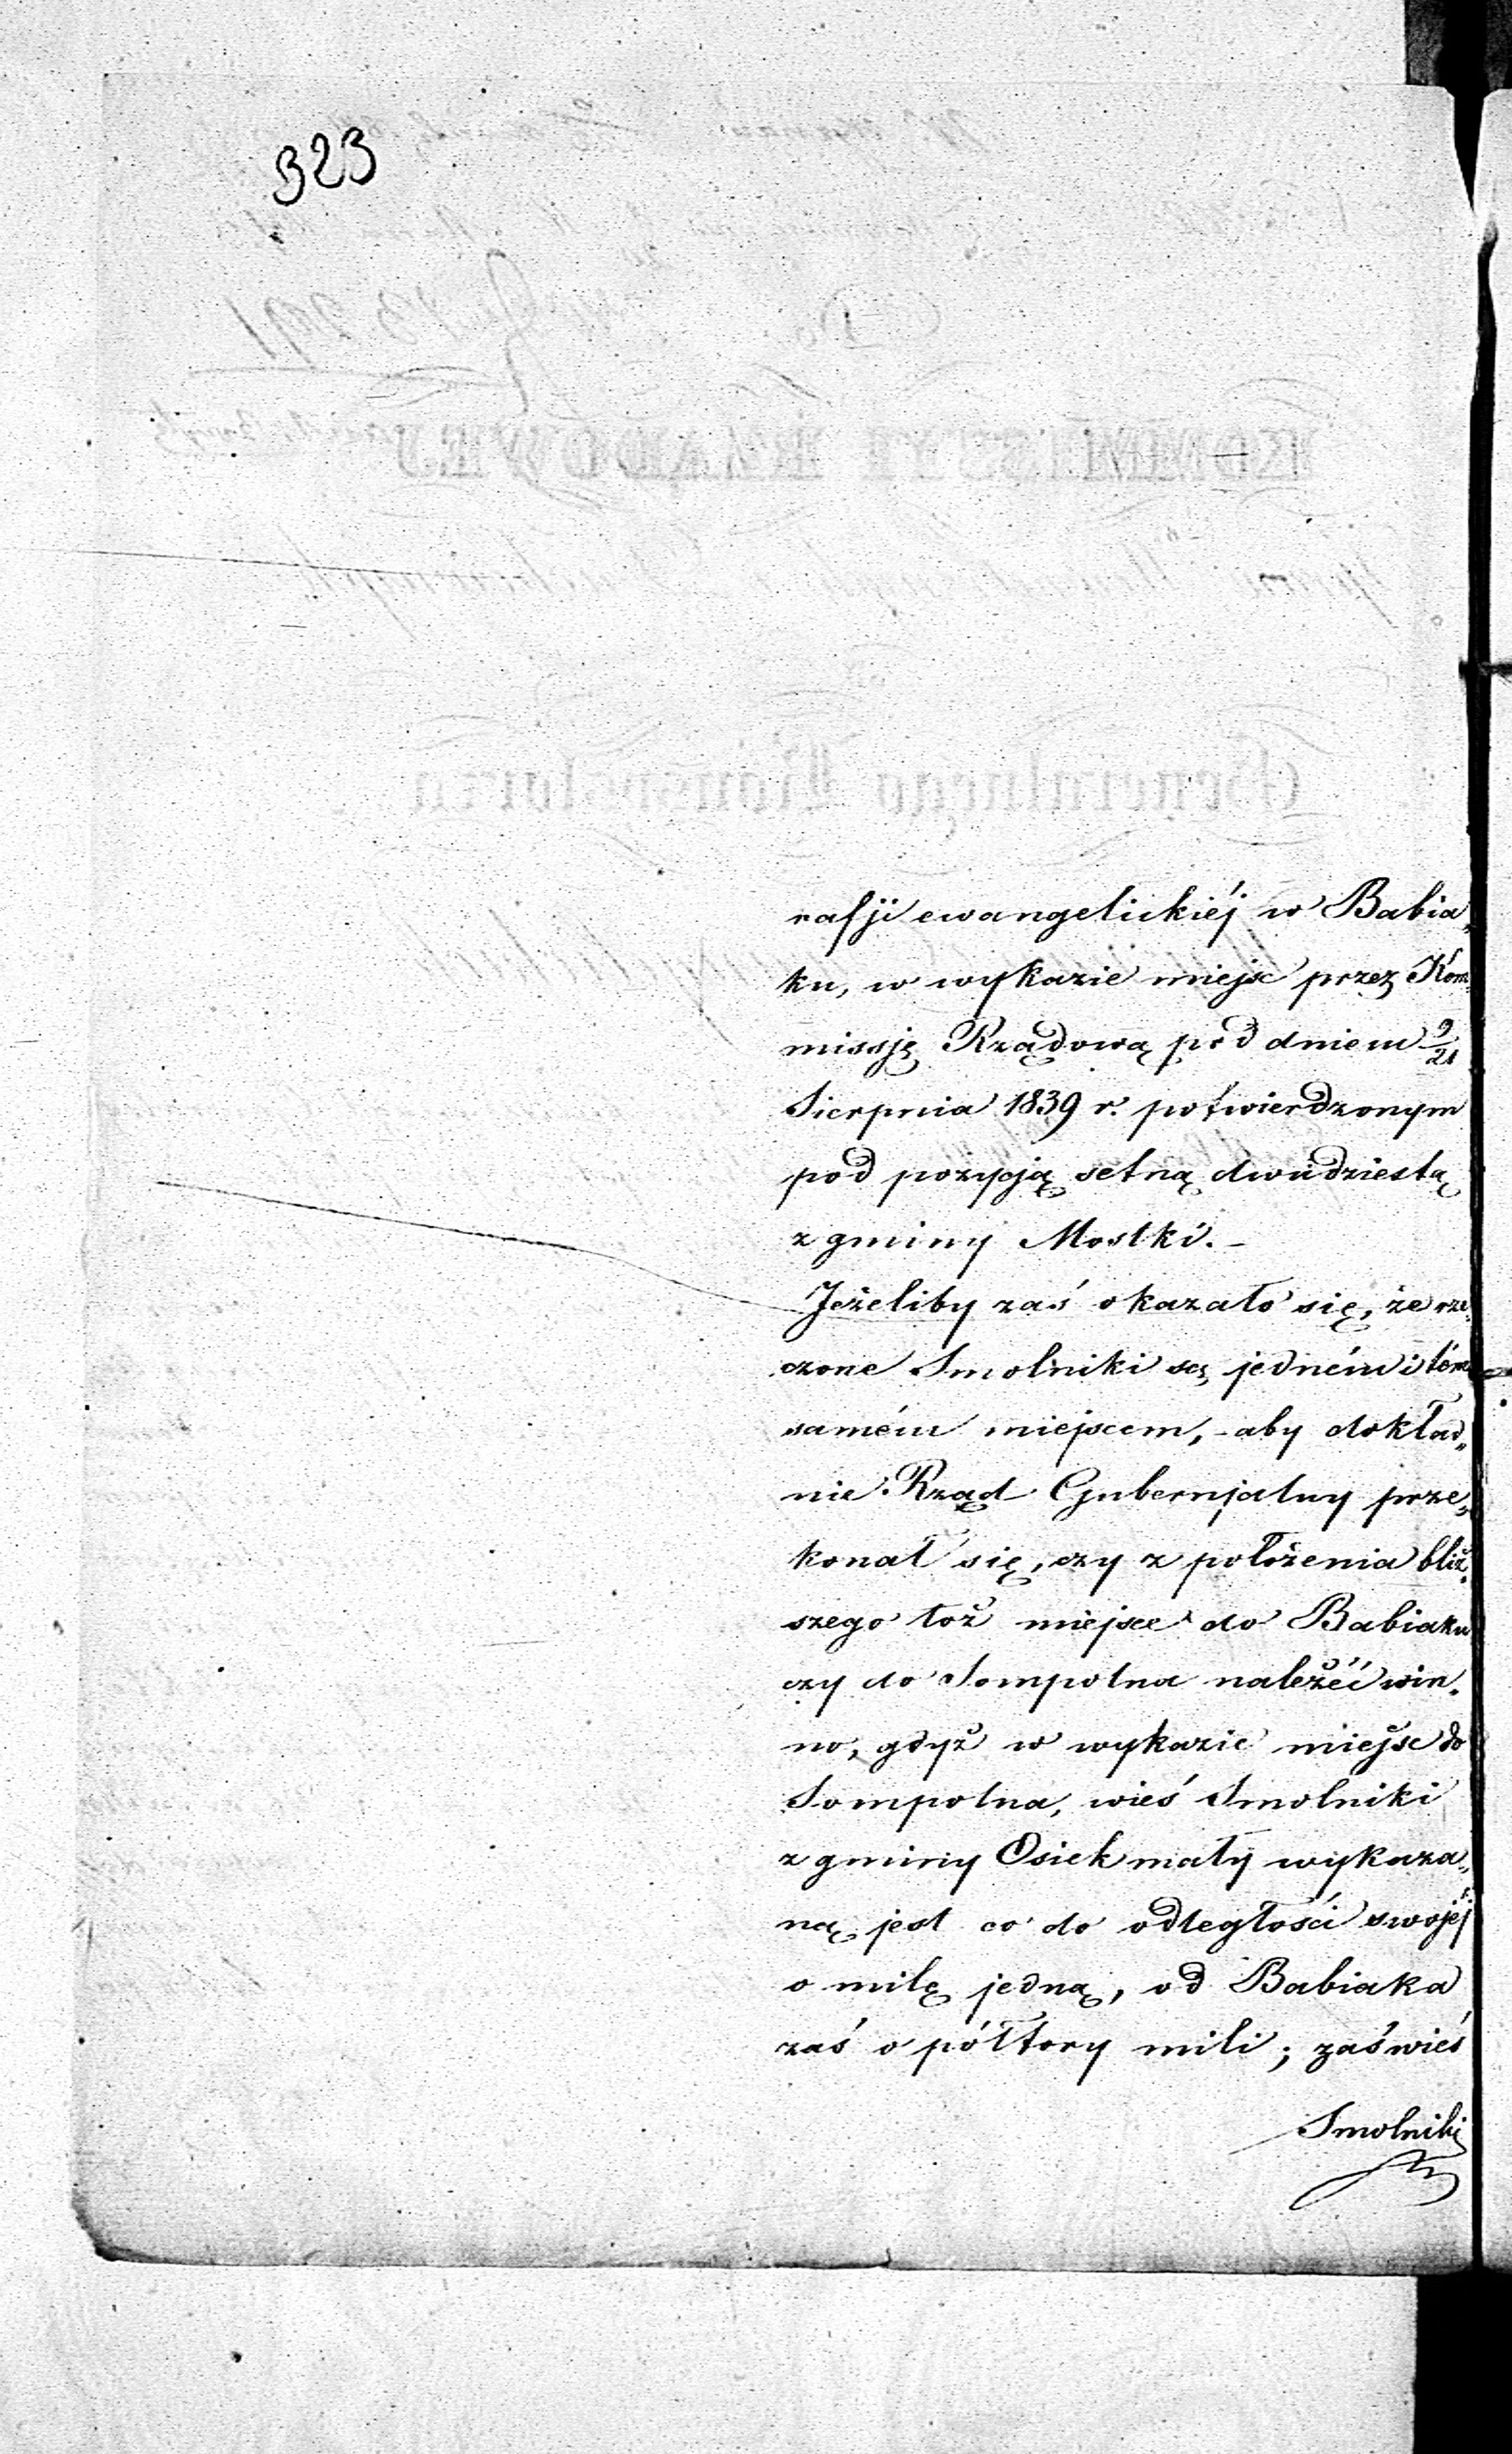 323
rafji ewangelickiéj w Babia„
ku, w wykazie miejsc przez Kom„
missję Rządową pod dniem 9/21
Sierpnia 1839 r. potwierdzonym
pod pozycją setną dwudziestą
z gminy Mostki. –
Jeżeliby zaś okazało się, że rze„
czone Smolniki są jedném i tém
samém miejscem, – aby dokład„
nie Rząd Gubernjalny prze„
konał się, czy z położenia bliż„
szego toż miejsce do Babiaku
czy do Sompolna należéć win„
no, gdyż w wykazie miejsc do
Sompolna, wieś Smolniki
z gminy Osiek mały wykaza„
ną jest co do odległości swojéj
o milę jedną, od Babiaka
zaś o półtory mili; zaś wieś
Smolniki